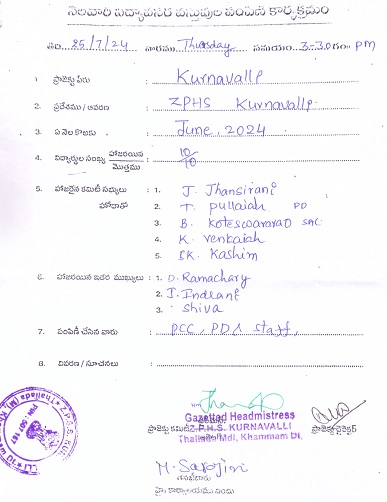 నెలవారీ నిత్యావసర వస్తువుల పంపిణీ కార్యక్రమం
తేది 25/7/24 వారము Thursday సమయం 3-30 గం PM
1 ప్రాజెక్టు పేరు : Kurnavalli
2. ప్రదేశము / ఆవరణ : ZPHS Kurnavalli
3. ఏ నెల కొఱకు : June, 2024
4. విద్యార్థుల సంఖ్య హాజరయిన / మొత్తము : 10/10
5. హాజరైన కమిటీ సభ్యులు : 1. J. Jhansirani
హోదాతో 2. T. pullaiah PD
3. B. Koteswararao
4. K. Venkaiah
5. SK. Kashim
6. హాజరయిన ఇతర ముఖ్యులు : 1. D. Ramachary
2. J. Indrani
3. Shiva
7. పంపిణీ చేసిన వారు : PCC, PD & staff,
8. వివరణ / సూచనలు :
Gazetted Headmistress
ప్రాజెక్టు కమిటీ Z.P.H.S. KURNAVALLI ప్రాజెక్టు డైరెక్టర్
Thallada Mdl, Khammam Dt.
M. Sarojini
హై. కార్యాలయము నుండి